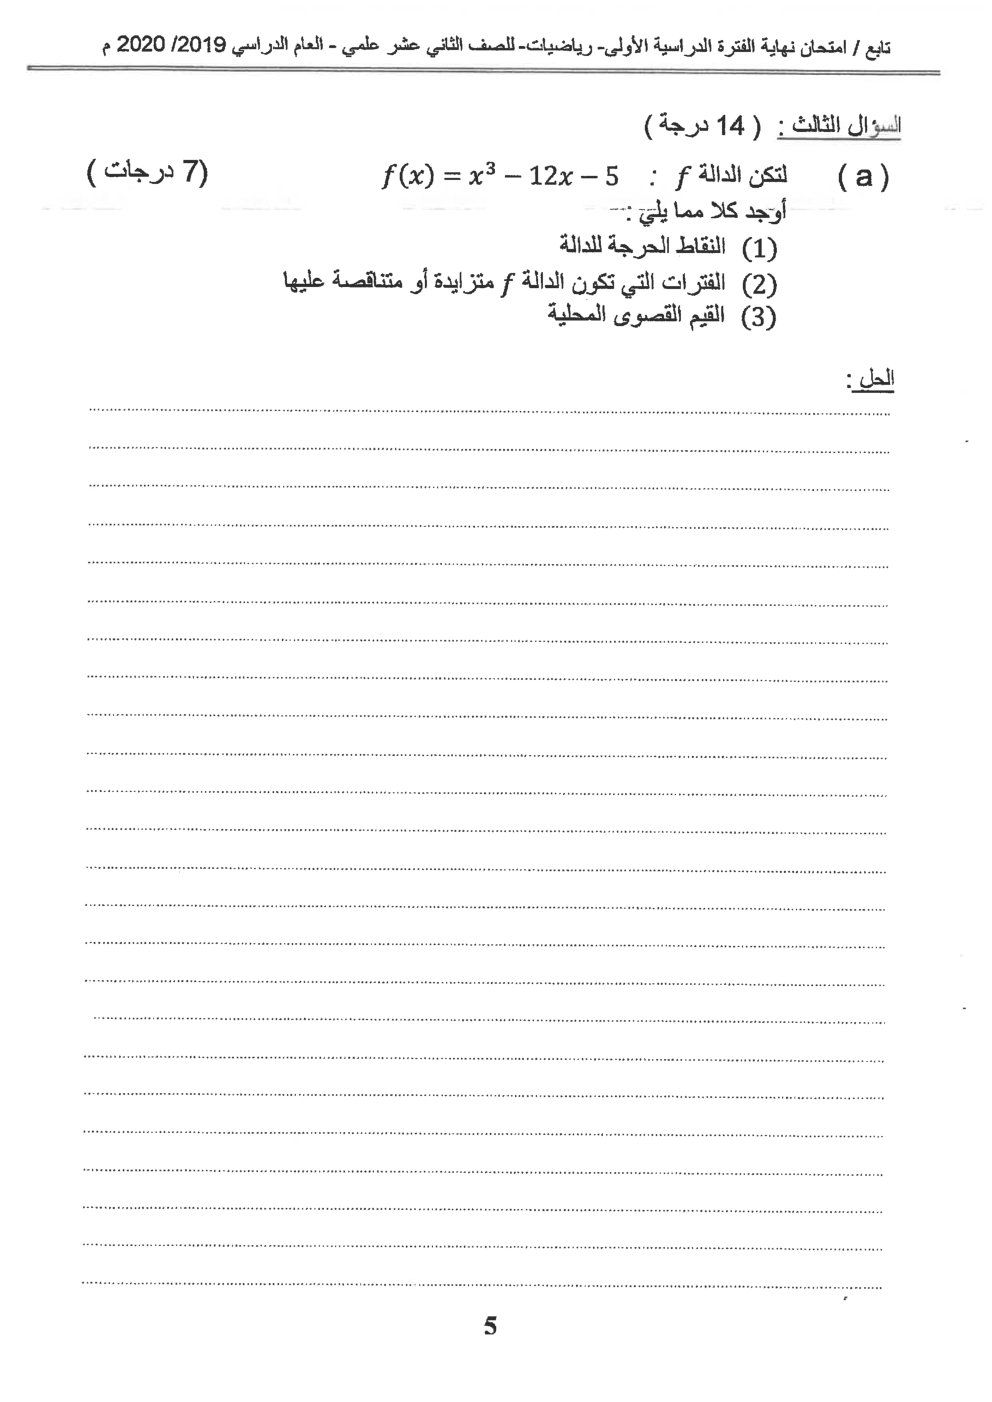 تابع / امتحان نهاية الفترة الدراسية الأولى- رياضيات- للصف الثاني عشر علمي - العام الدراسي 2019/ 2020 م
السؤال الثالث : ( 14 درجة )
( a ) لتكن الدالة f : f(x) = x³ − 12x − 5 (7 درجات )
أوجد كلا مما يلي :-
(1) النقاط الحرجة للدالة
(2) الفترات التي تكون الدالة f متزايدة أو متناقصة عليها
(3) القيم القصوى المحلية
الحل :
5